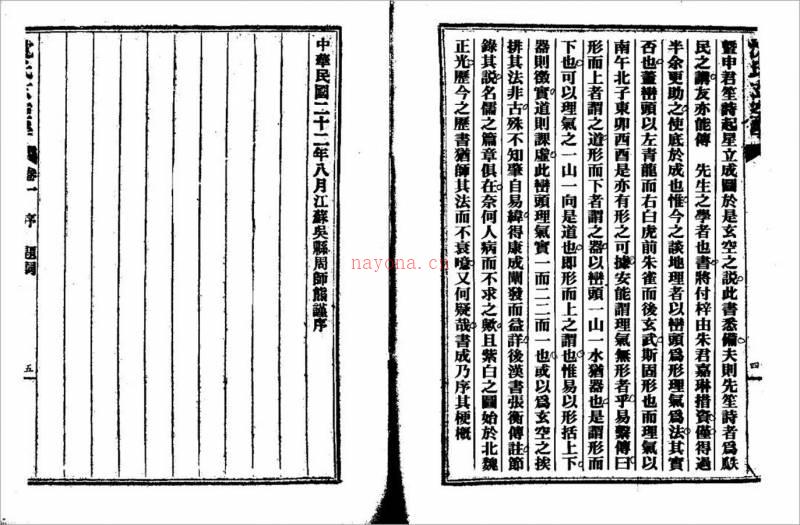 曁申君笙詩起星立成圖於是玄空之說此書悉備夫則先笙詩者爲
民之講友亦能傳　先生之學者也書將付梓由朱君嘉琳措資僅得過
半余更助之使底於成也惟今之談地理者以巒頭爲形理氣爲法其實
否也蓋巒頭以左青龍而右白虎前朱雀而後玄武斯固形也而理氣以
南午北子東卯西酉是亦有形之可據安能謂理氣無形者乎易繫傳曰
形而上者謂之道形而下者謂之器以巒頭一山一水猶器也是謂形而
下也可以理氣之一山一向是道也卽形而上之謂也惟易以形括上下
器則徵實道則課虛此巒頭理氣實一而二二而一也或以爲玄空之挨
排其法非古殊不知肇自易緯得康成闡發而益詳後漢書張衡傳註節
錄其說名儒之篇章俱在奈何人病而不求之歟且紫白之圖始於北魏
正光歷今之歷書猶師其法而不衰噫又何疑哉書成乃序其梗概
四
中華民國二十二年八月江蘇吳縣周師熊謹序
卷一　序　題詞
五
nayona.cn